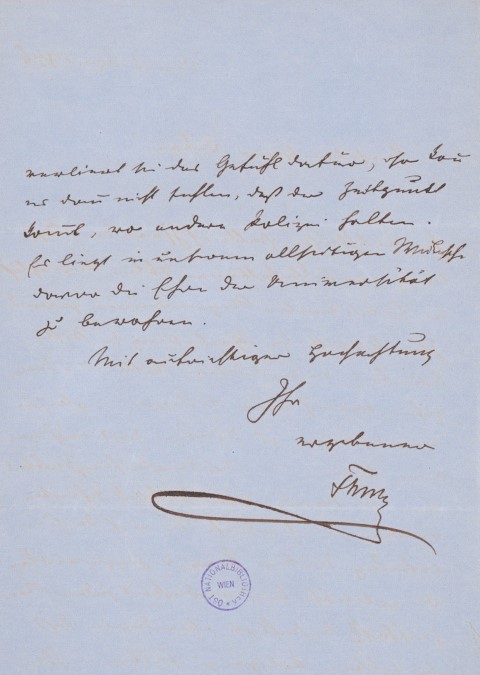 verliert sie das Gefühl dafür, so kan
es dan nicht fehlen, daß der Zeitpunkt
komt, wo andere Polizei halten.
Es liegt in unserem allseitigen Wunsche
davor die Ehre der Universität
zu bewahren.
Mit aufrichtiger Hochachtung
Ihr
ergebener
ÖST. NATIONALBIBLIOTHEK
WIEN